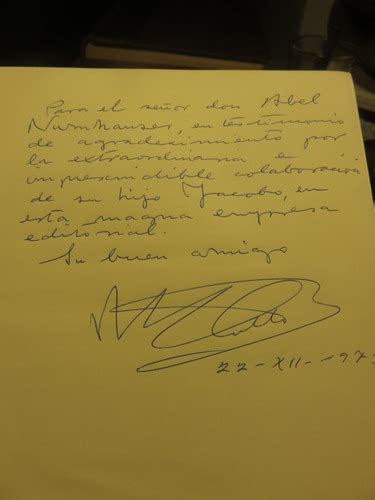 Para el señor don Abel
Nurnhauser, en testimonio
de agradecimiento por
la extraordinaria e
imprescindible colaboración
de su hijo Jacobo, en
esta magna empresa
editorial.
Su buen amigo
22-XII-197